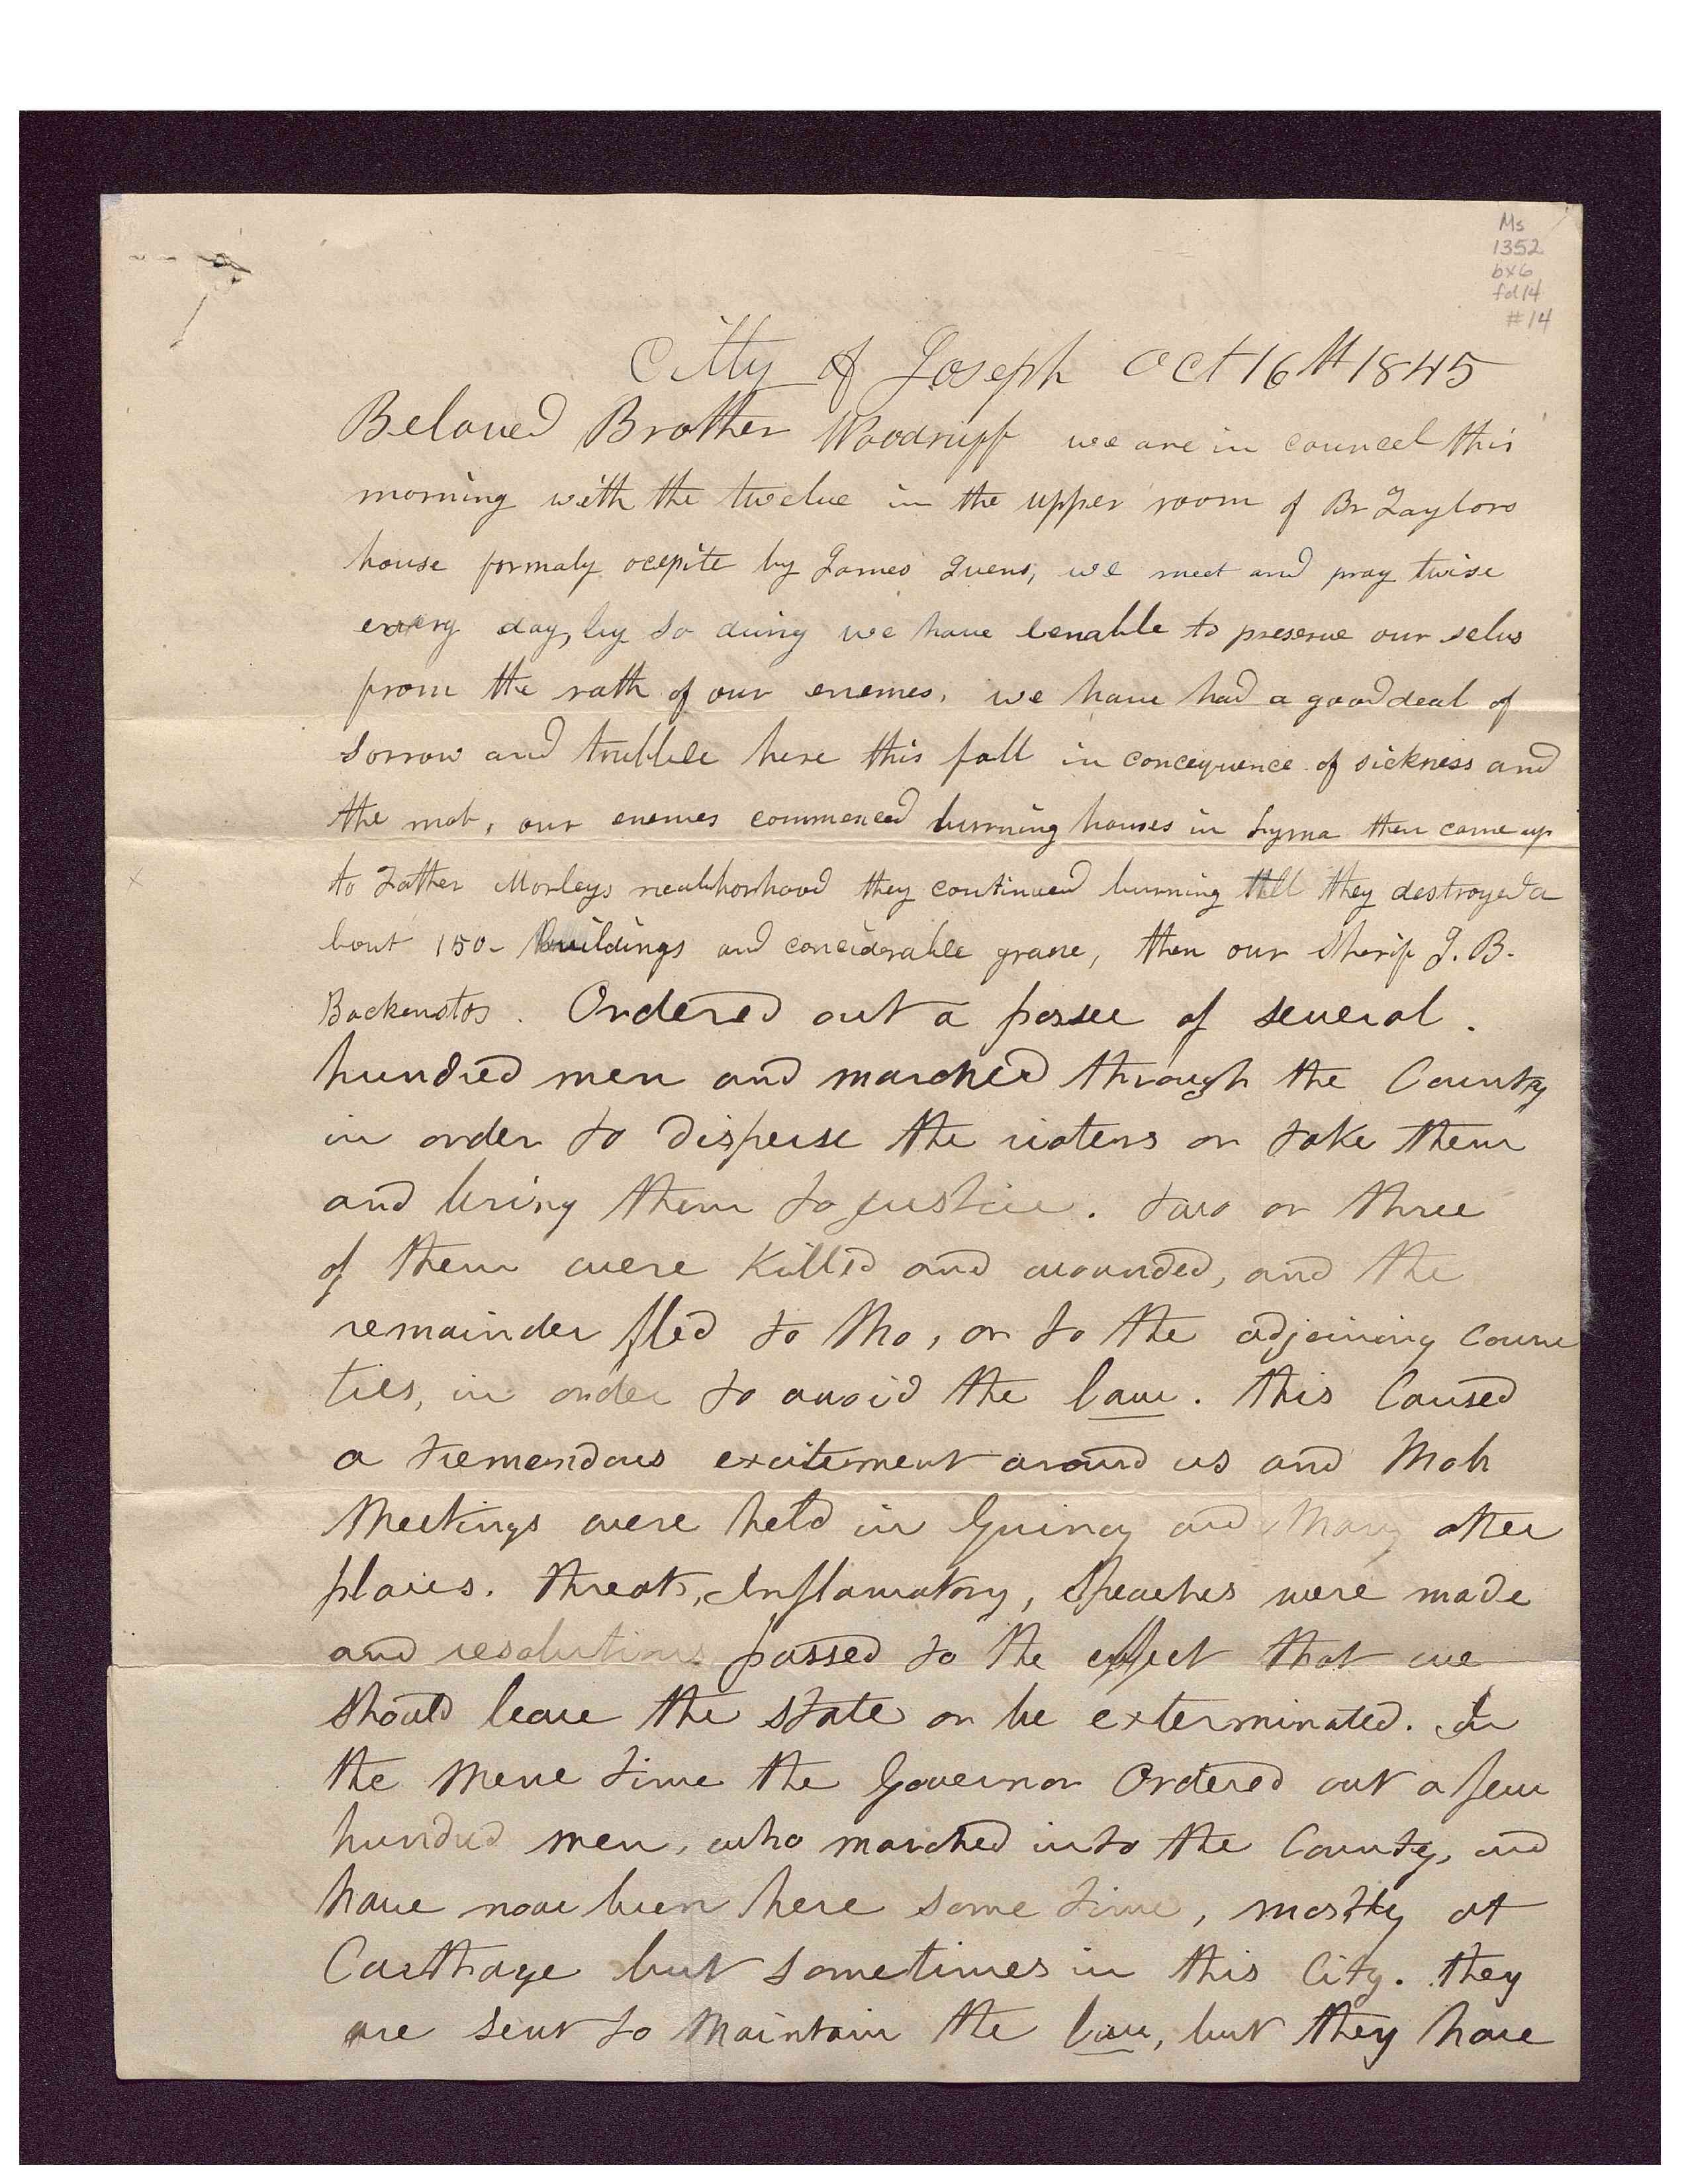 Ms
1352
bx6
fd14
#14
Citty of Joseph Oct 16th 1845
Beloved Brother Woodruff we are in councel this
morning with the twelve in the upper room of Br Taylors
house formaly ocepite by James Ivens, we meet and pray twise
every day, by so duing we have benable to preserve our selvs
from the rath of our enemes, we have had a good deal of
sorrow and trubble here this fall in concequence of sickness and
the mob, our enemes commenced burning houses in Lyma then came up
to Father Morleys neabhorhood they continued burning till they destroyed a
bout 150- buildings and conciderable grane, then our Sherif J. B.
Backenstos. Ordered out a possee of several.
hundred men and marched through the County
in order to disperse the rioters or take them
and bring them to justice. two or three
of them were killed and wounded, and the
remainder fled to Mo, or to the adjoining Coun
ties, in order to avoid the law. this Caused
a tremendous excitement around us and Mob
Meetings were held in Quincy and Many other
places. threats, Inflamatory, Speaches were made
and resolutions passed to the effect that we
should leave the state or be exterminated. In
the mene time the Governor Ordered out a few
hundred men, who marched into the County, and
have now been here some time, mostly at
Carthage but sometimes in this City. they
are sent to Maintain the law, but they have